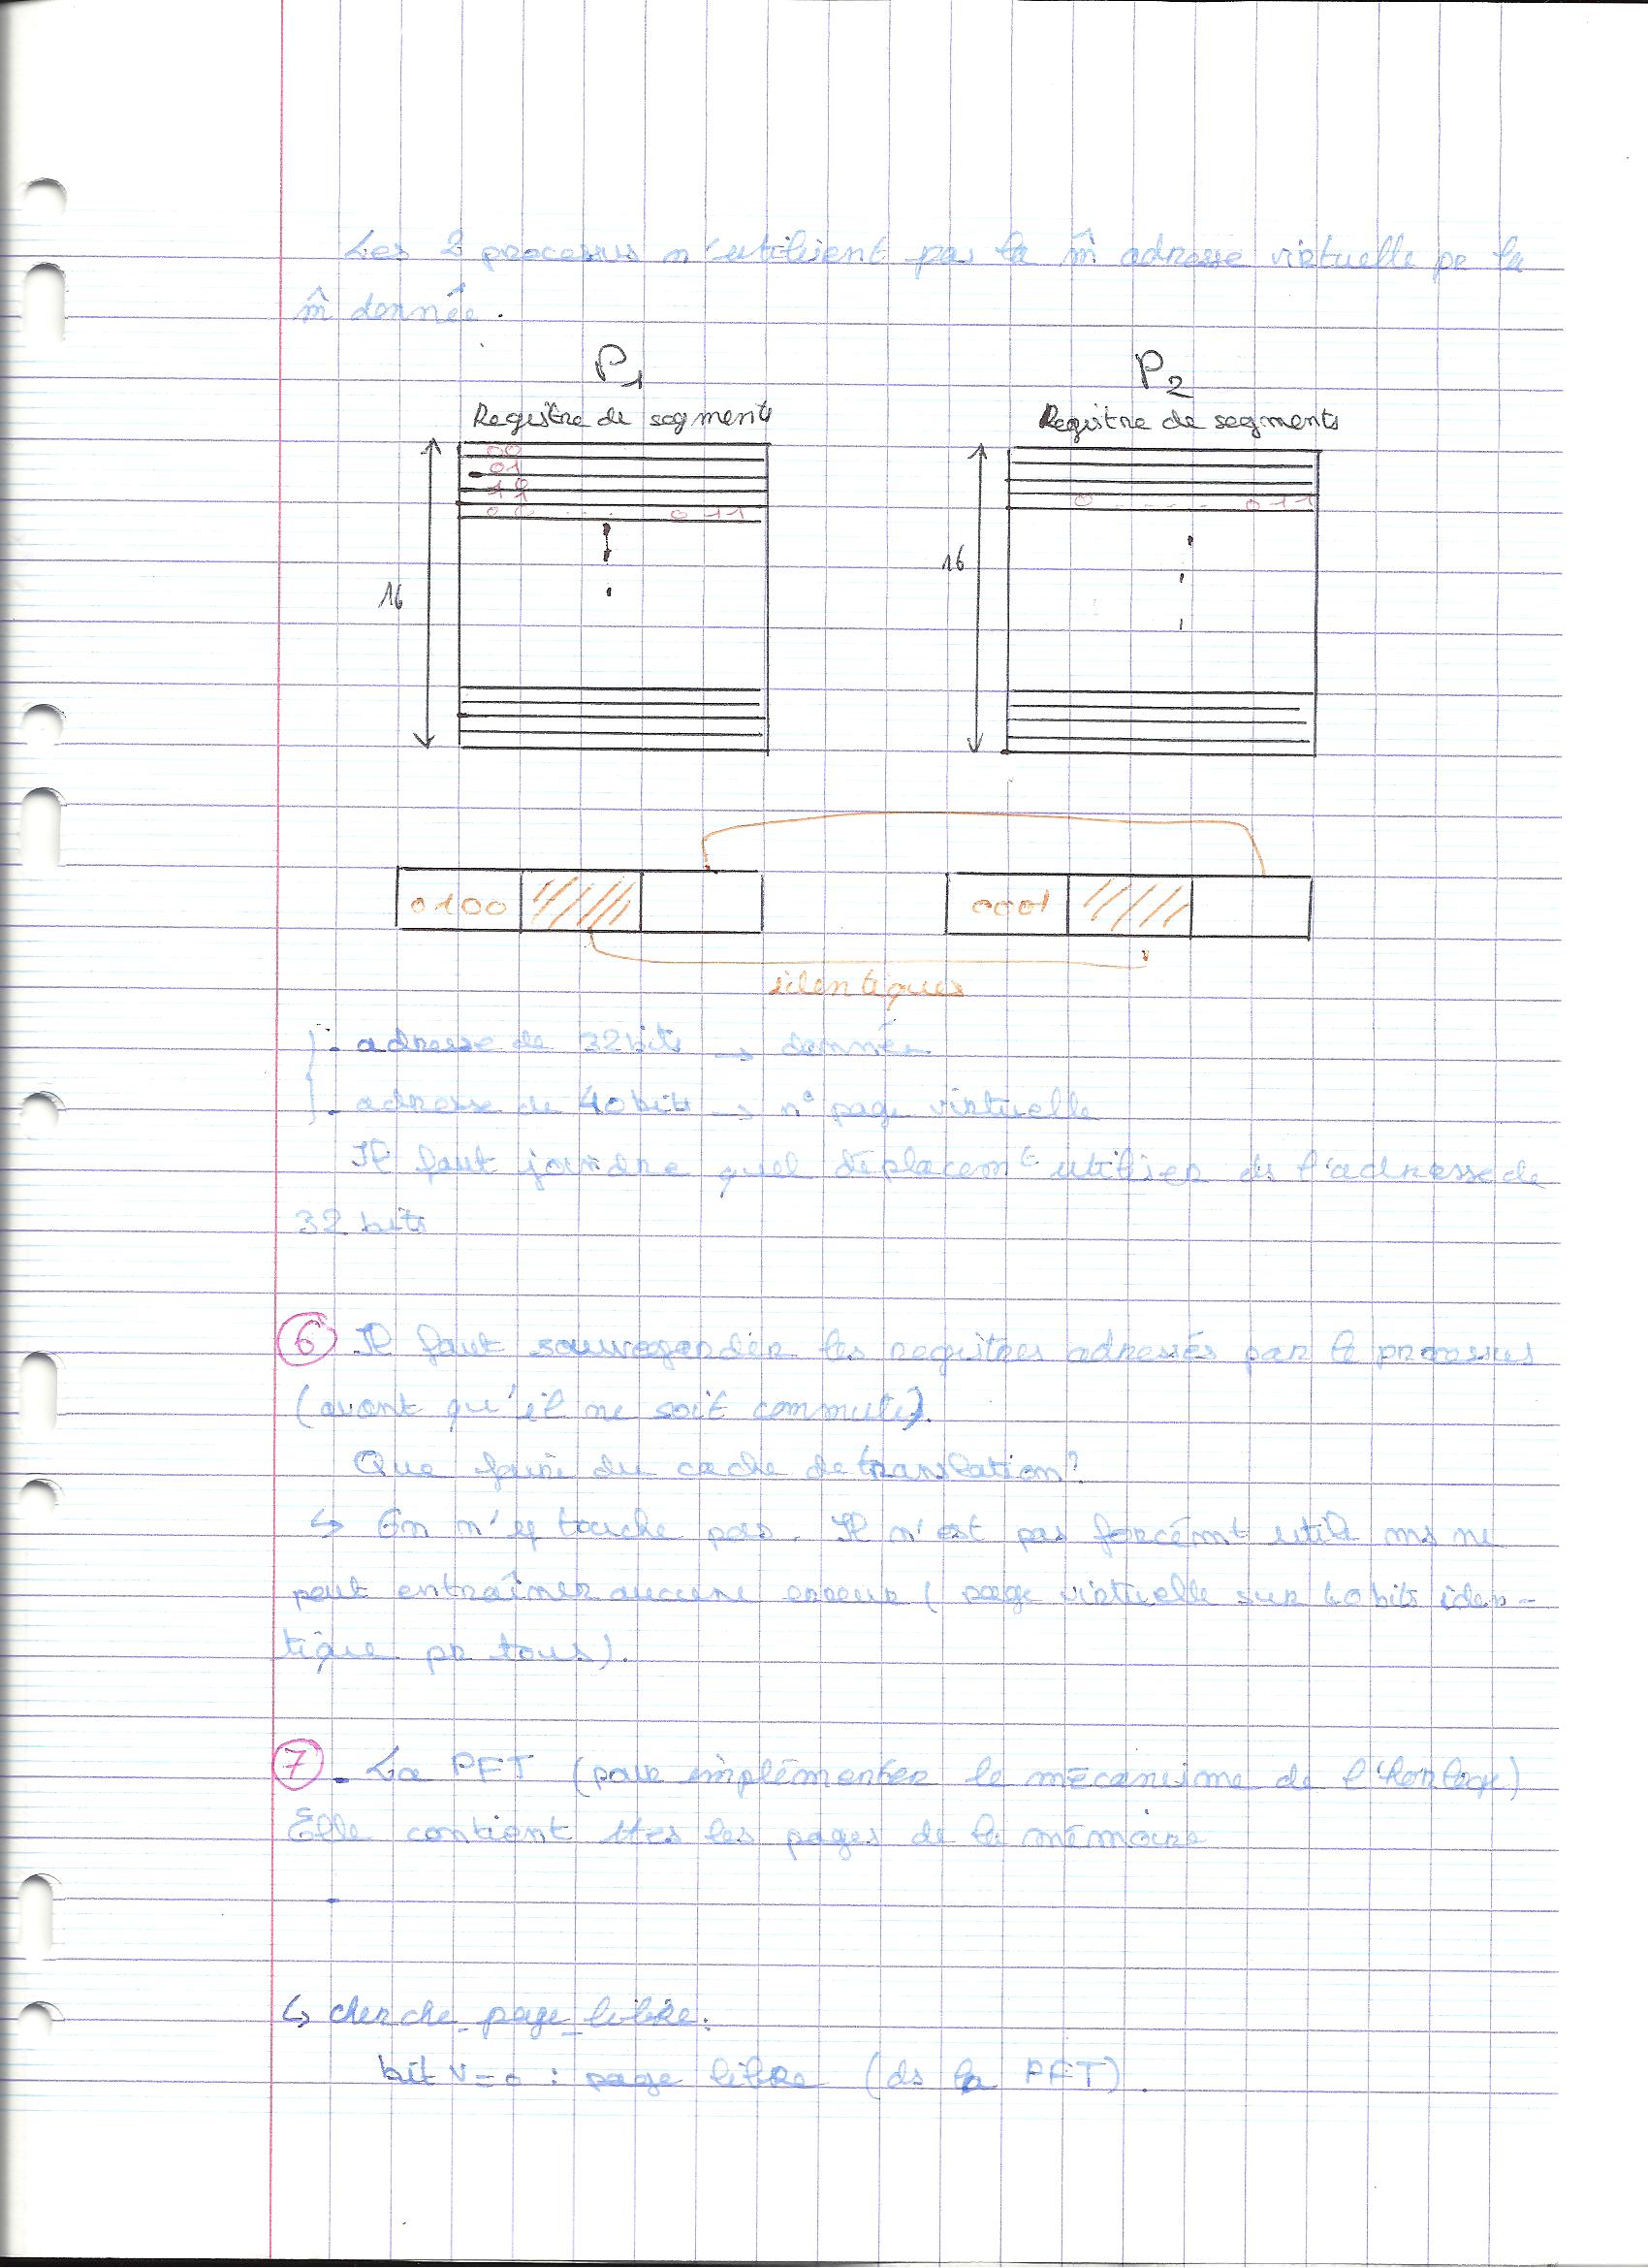 Les 2 processus n'utilisent pas la m̂ adresse virtuelle pr la
m̂ donnée.
P1
P2
Registre de segments
Registre de segments
00
01
10
11
00 . . . . 011
0 . . . . 011
16
16
0100
0001
identiques
- adresse de 32 bits → donnée
- adresse de 40 bits → n° page virtuelle
Il faut joindre quel déplacemt utiliser ds l'adresse de
32 bits
6 Il faut sauvegarder les registres adressés par le processus
(avant qu'il ne soit commuté).
Que faire du cache de translation?
↳ On n'y touche pas. Il n'est pas forcémt utile ms ne
peut entraîner aucune erreur (page virtuelle sur 40 bits iden-
tique pr tous).
7 - La PFT (pour implémenter le mécanisme de l'horloge)
Elle contient ttes les pages de la mémoire
-
↳ cherche_page_libre:
bit V=0 : page libre (ds la PFT).